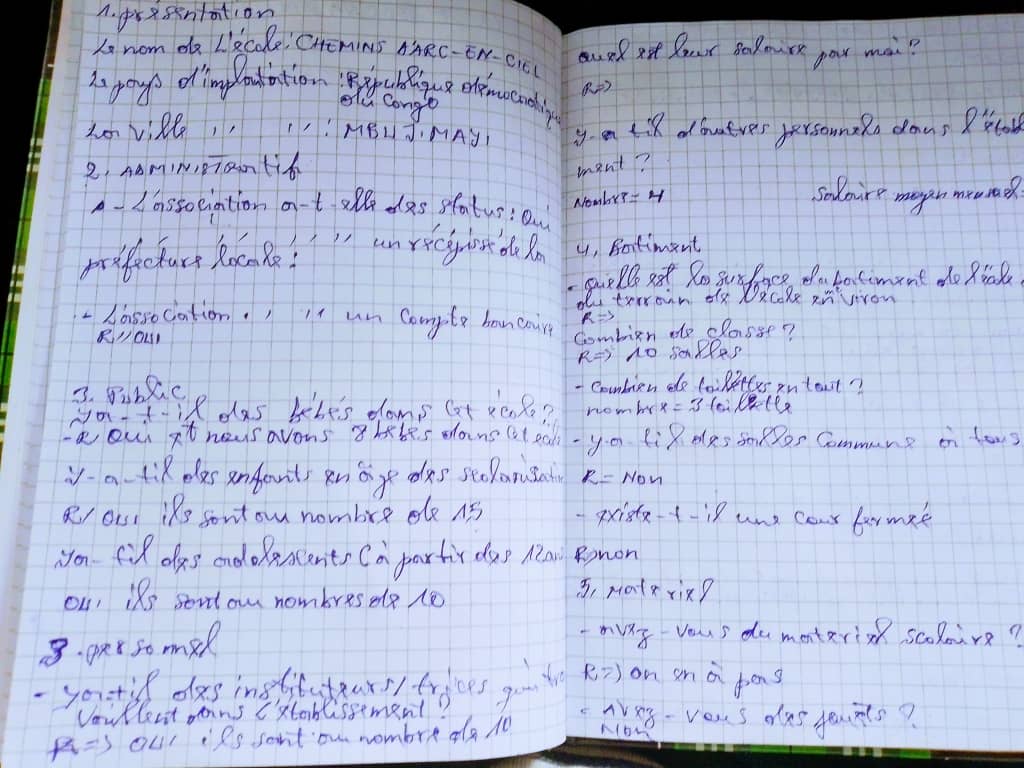 1. présentation
Le nom de L'école: CHEMINS D'ARC-EN-CIEL
Le pays d'implantation : République démocratique
du Congo
La ville ,, ,, : MBUJIMAYI
2. ADMINISTratif
- L'association a-t-elle des status: Oui
, , , , ,, un récépissé de la
préfecture locale:
- L'association . , ,, un Compte bancaire
R// oui
3. Public
ya-t-il des bébés dans cet école?
-R/ Oui et nous avons 8 bébés dans cet école
y-a-til des enfants en âge des scolarisation
R/ Oui ils sont au nombre de 15
ya-til des adolescents (à partir des 12 ans
Oui ils sont au nombres de 10
3. personnel
- ya-t-il des instituteurs/trices qui tra
vaillent dans l'établissement?
R=> oui ils sont au nombre de 10
quel est leur salaire par moi?
R=>
y-a til d'autres personnels dans l'établ
ment?
Nombre=4 Salaire moyen mensuel
4, Batiment
- quelle est la surface du batiment de l'école
du terrain de l'école environ
R=>
Combien de classe?
R=> 10 salles
- Combien de toilettes en tout?
nombre=3 toillette
- y-a-til des salles Commune à tous
R= Non
- existe-t-il une Cour fermée
R=> non
5, Materiel
- avez-vous du materiel scolaire?
R=> on en à pas
- Avez-vous des jouets?
Non